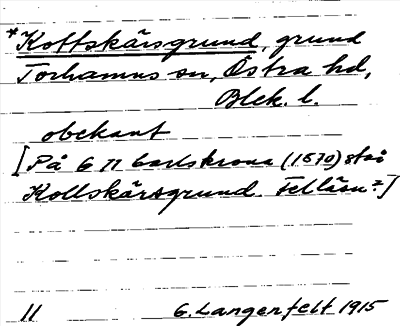 *Koffskärsgrund, grund
Torhamns sn, Östra hd,
Blek. l.
obekant
[På G Π Carlskrona (1570) står
Kollskärsgrund. Felläsn?]
11 G. Langenfelt 1915